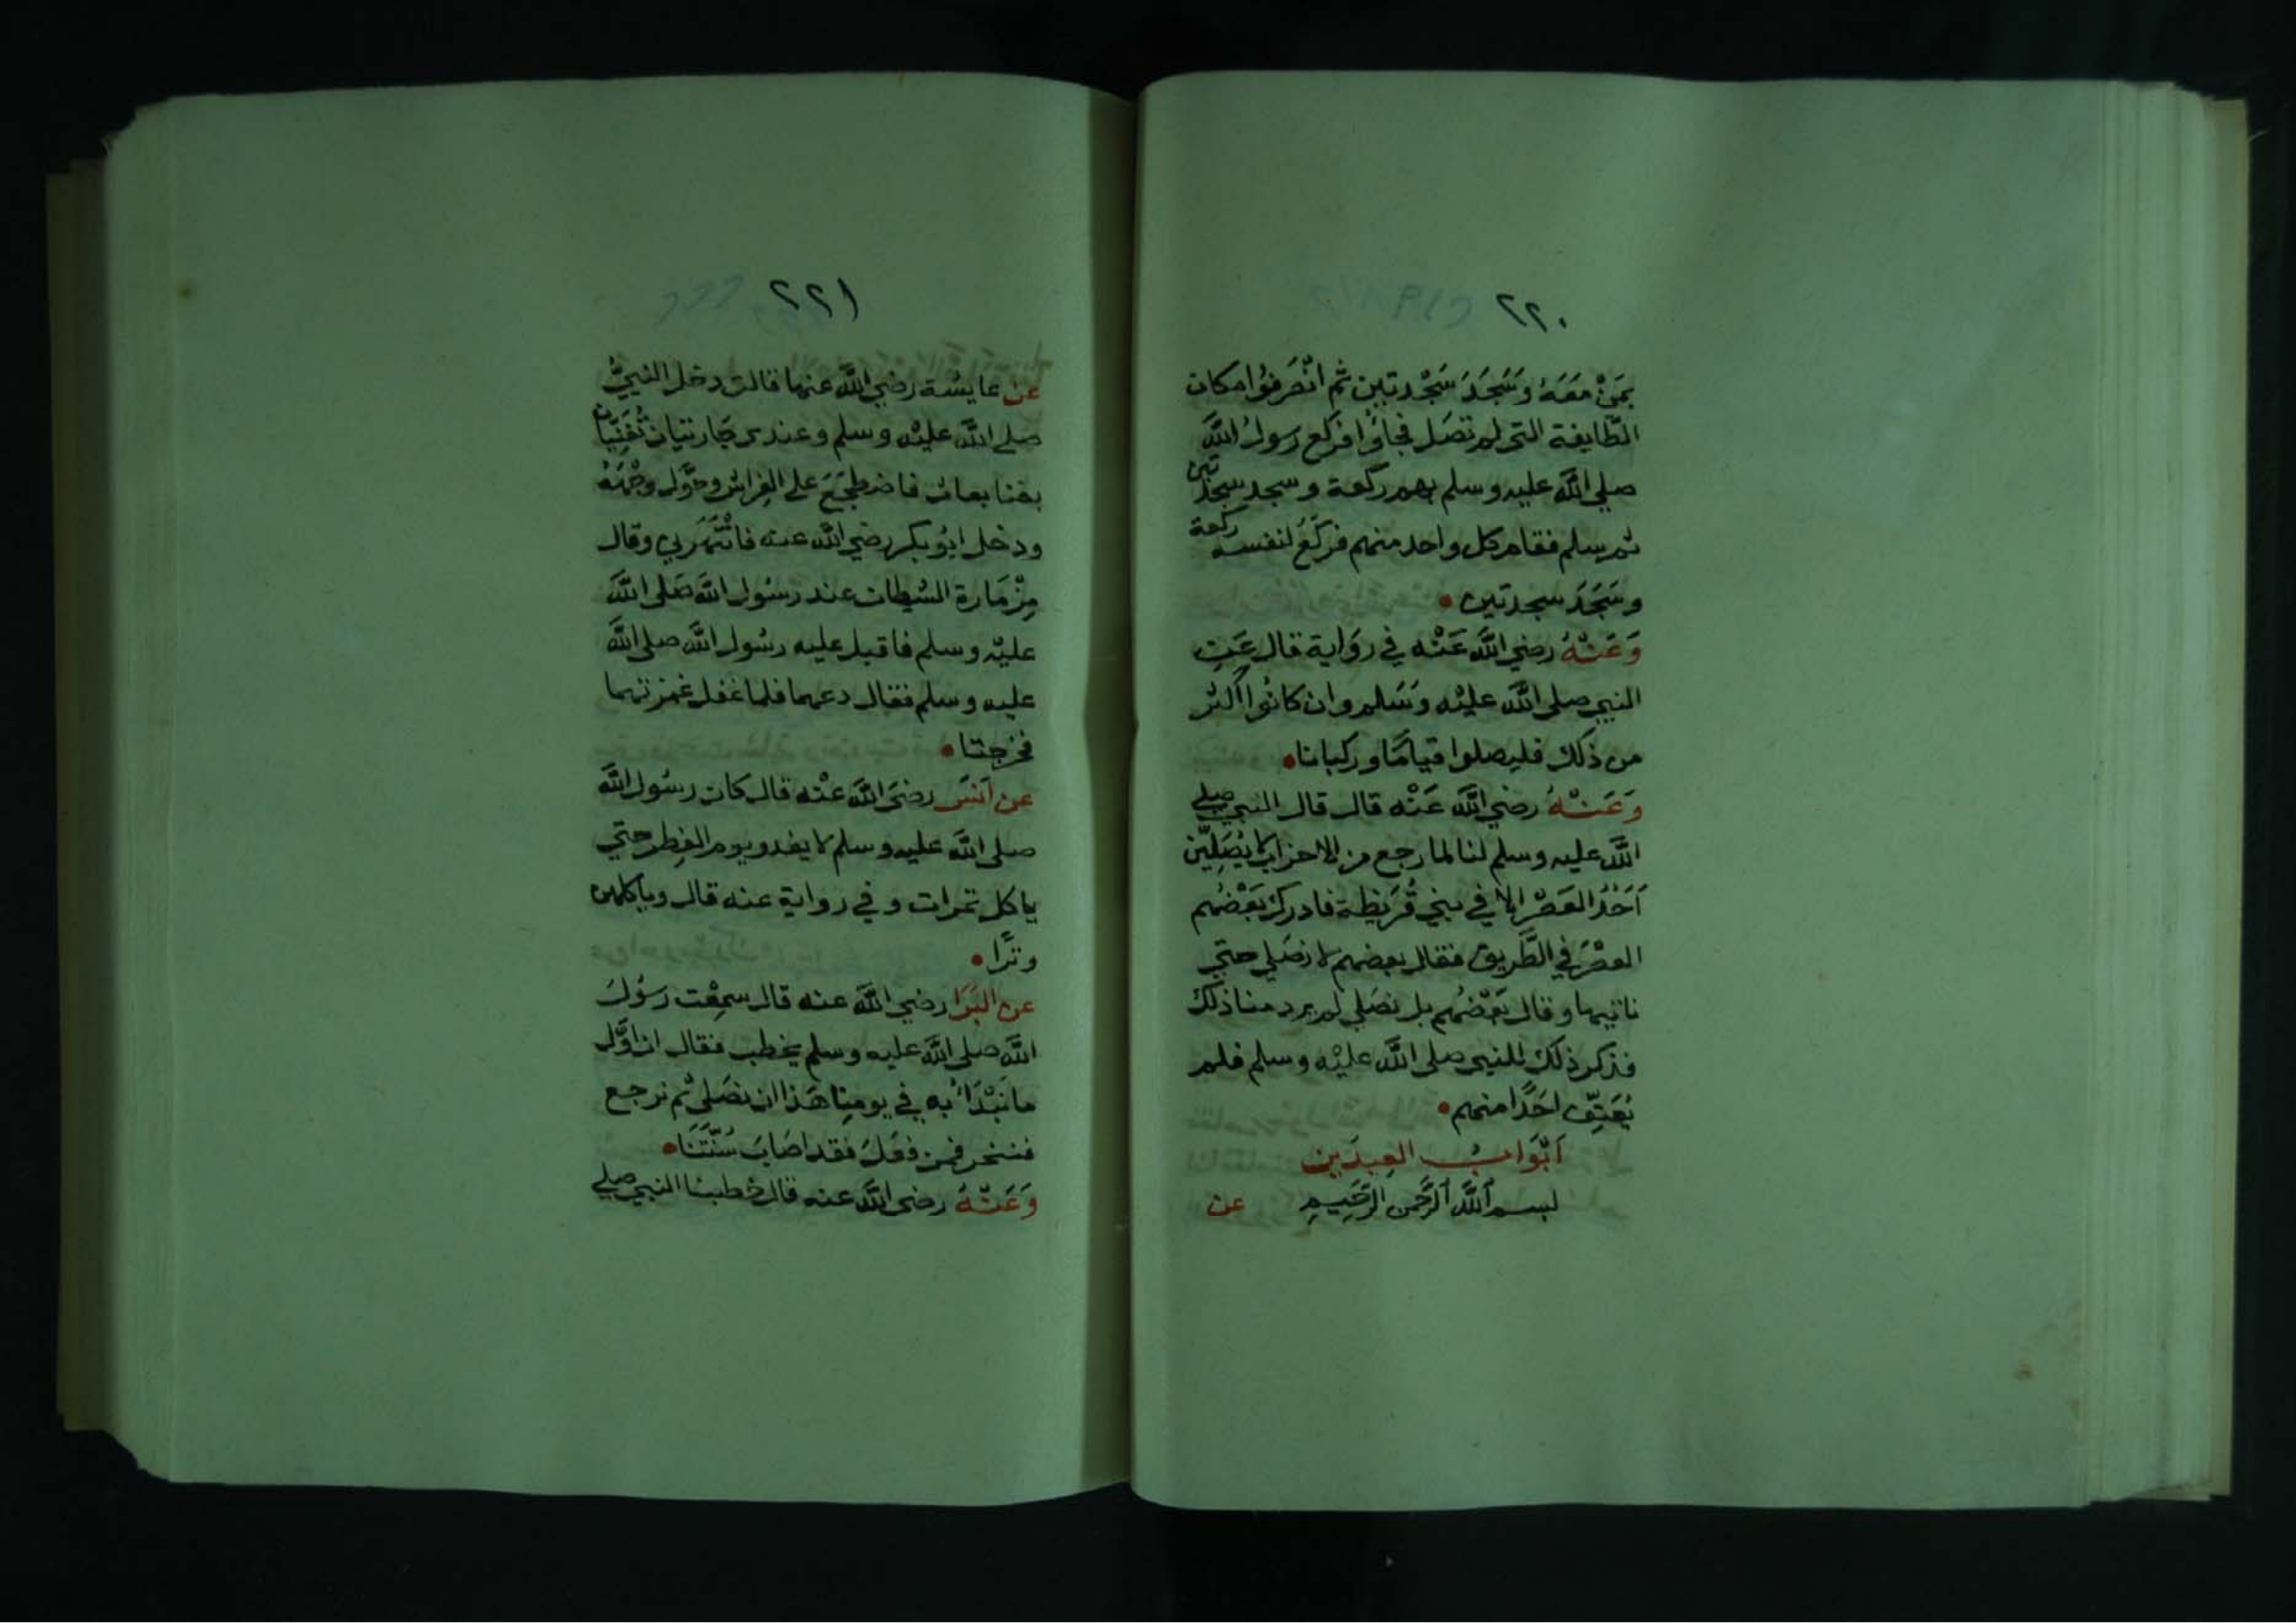 ٢٢٠
بمَنْ مَعَهُ وَسَجَدَ سَجْدتين ثم انْصَرفُوا مكان
الطّايفة التي لم تصَل فجاؤا فركع رسولُ اللَّه
صلي اللَّه عليه وسلم بهم ركعة وسجد سجدتين
ثم سلم فقام كل واحد منهم فركَعَ لنفسه ركعة
وسَجَدَ سجدتين •
وَعَنْهُ رضي اللَّه عَنْه في روَاية قال عَنِ
النبي صلى اللَّه عليْه وَسَلم وان كانُوا اكثر
من ذلك فليصلوا قيامًا وركبانا •
وَعَنْهُ رضي اللَّه عَنْه قال قال النبي صلي
اللَّه عليه وسلم لنا لما رجع من الاحزاب لا يُصَلِيَّن
اَحَدٌ العَصْر الا في بني قُرَيظة فادركَ بَعْضُهم
العصْرَ في الطَّريق فقال بعضهم لا نصَلي حتي
ناتيها وقال بَعْضُهم بل نصَلي لم يرد منا ذلك
فذكر ذلك للنبي صلى اللَّه عليْه وسلم فلم
يُعَنِّف احَدًا منهم •
اَبْوَابُ العِيدَين
بسم اللَّه الرَّحمن الرَّحَيمِ عن
٢٢١
عن عايشة رضي اللَّه عنها قالت دخل النبيُّ
صلى اللَّه عليْه وسلم وعندي جَاريتان تُغَنِّيَان
بغنا بعاث فاضطجَعَ على الفِراش وحَوَّل وجْهَهُ
ودخل ابُو بكر رضي اللَّه عنه فانْتَهَرَني وقال
مِزْمَارة الشيطان عند رسُول اللَّه صَلى اللَّه
عليْه وسلم فاقبل عليه رسُول اللَّه صلى اللَّه
عليه وسلم فقال دعهما فلما غفل غمزتهما
فخرجتا •
عن اَنَس رضيَ اللَّه عنْه قال كان رسُول اللَّه
صلى اللَّه عليه وسلم لا يغدو يوم الفِطر حتي
ياكل تمرات وفي رواية عنه قال وياكلهن
وترًا •
عن البَرَا رضي اللَّه عنه قال سمِعْت رسُولَ
اللَّه صلى اللَّه عليه وسلم يخطب فقال ان اوَّل
ما نَبْدَاُ به في يومِنا هَذا ان نصَلى ثم نرجع
فننحر فمن فعَلَ فقد اصَابَ سُنَّتَنَا •
وَعَنْهُ رضى اللَّه عنه قال خطبنا النبي صلي